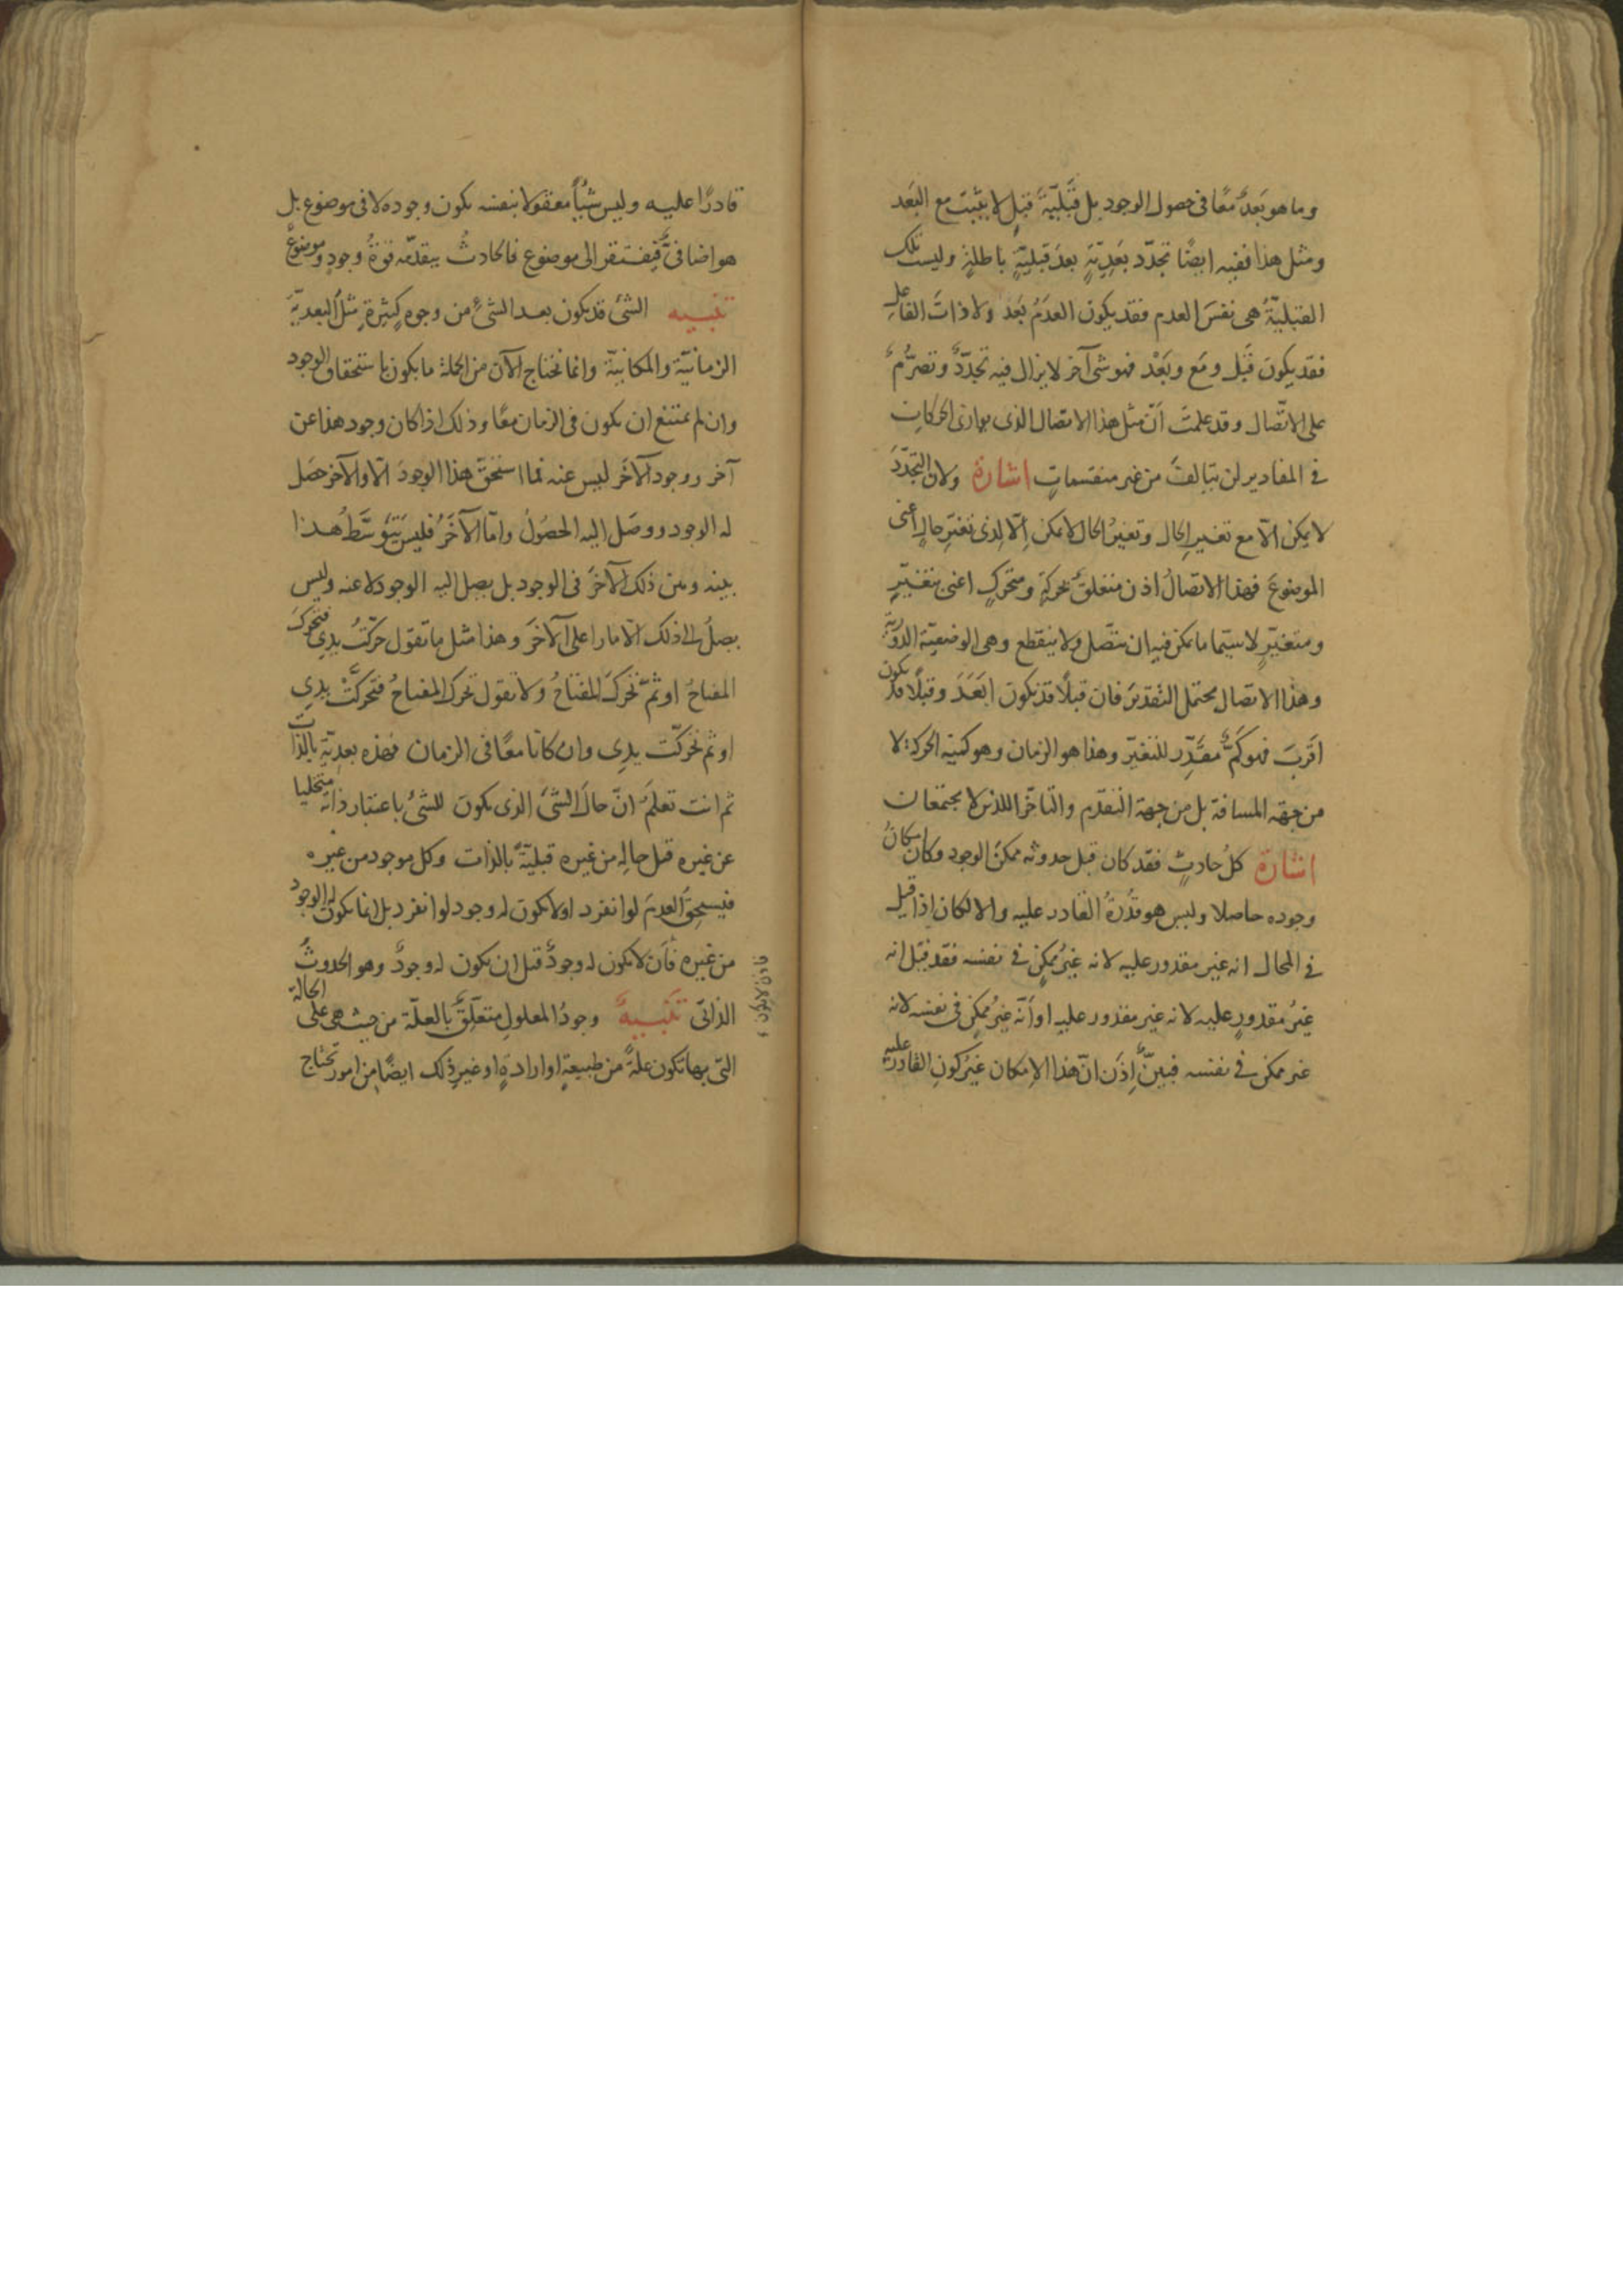 وما هو بَعدُ معًا فى حصول الوجود بل قَبْليّةُ قبلٍ لا يثبت مع البَعد
ومثل هذا ففيه ايضًا تجدّد بَعدِيّةٍ بعدَ قبليّةٍ باطلةٍ وليست تلك
القبليّةُ هى نفسَ العدم فقد يكون العدَمُ بَعْدُ ولا ذاتَ الفاعل
فقد يكون قَبْل ومَع وبَعْد فهو شئ آخر لا يزال فيه تجدّدٌ وتصرُّمٌ
على الاتّصال وقد علمتَ اَنّ مثل هذا الاتصال الذى يوازى الحركات
فى المقادير لن يتالفَ من غير منقسماتٍ اشارة ولان التجدّدَ
لا يمكن الّا مع تغيير الحال وتغيّرُ الحال لا يمكن اِلّا لذى تغيّرِ حالٍ اعنى
الموضوعَ فهذا الاتصالُ اذن متعلّقٌ بحركةٍ ومتحركٍ اعنى بتغيّرٍ
ومتغيّرٍ لاسيّما ما يمكن فيه ان يتصل ولا ينقطع وهى الوضعيّة الدوريّة
وهذا الاتصال يحتمل التقدير فان قبلًا قد يكون ابْعَدَ وقبلًا قد يكون
اَقربَ فهو كَمٌّ مقدِّر للتغيّر وهذا هو الزمان وهو كميّة الحركة لا
من جهة المسافة بل من جهة التقدّم والتاخّر اللذين لا يجتمعان
اشارة كلُّ حادثٍ فقد كان قبل حدوثه ممكنَ الوجود وكان امكانُ
وجوده حاصلا وليس هو قدْرةُ القادر عليه والا لكان اذا قيل
فى المحال انه غير مقدور عليه لانه غيرُ ممكنٍ فى نفسه فقد قيل انه
غيرُ مقدورٍ عليه لانه غير مقدور عليه او اَنّه غيرُ ممكنٍ فى نفسه لانه
غير ممكن فى نفسه فبيّنٌ اِذَن انّ هذا الامكان غيرُ كونِ القادر عليه
قادرًا عليه وليس شيْأً معقولا بنفسه يكون وجوده لا فى موضوع بل
هو اضافىٌّ فيفتقر الى موضوع فالحادثُ يتقدّمه قوّةُ وجودٍ وموضوعٌ
تنبيه الشئ قد يكون بعد الشئ من وجوه كثيرةٍ مثلُ البعديّة
الزمانيّة والمكانيّة وانما نحتاج الآن من الجملة ما يكون باستحقاق الوجود
وان لم يمتنع ان يكون فى الزمان معًا وذلك اذا كان وجود هذا عن
آخر ووجود الآخر ليس عنه فما استحقّ هذا الوجودَ الّا والآخر حصَل
له الوجود ووصَل اليه الحصُولُ وامّا الآخَرُ فليس يتَوسَّطُ هذا
بينه وبين ذلك الآخرَ فى الوجود بل يصل اليه الوجود لا عنه وليس
يصلُ الى ذلك الّا مارا على الآخرَ وهذا مثل ما تقول حرّكتُ يدِى فتحرّك
المفتاحُ او ثمّ تحرّكَ المفتاحُ ولا تقول تحرك المفتاحُ فتحركَتْ يدِى
او ثم تحركّت يدِى وان كانا معًا فى الزمان فهذه بعديّة بالذات
ثم انت تعلمَ انّ حالَ الشئ الذى يكون للشئ باعتبار ذاته متخليا
عن غيره قبل حالِه من غيره قبليّةً بالذات وكل موجود من غيره
فيستحقّ العدمَ لو انفرد او لا يكون له وجود لو انفرد بل انما يكون له الوجود
من غيره فاَن لا يكون له وجودٌ قبل ان يكون له وجودٌ وهو الحدوثُ
الذاتىّ تنبيهٌ وجودُ المعلولِ متعلّقٌ بالعلّة من حيث هى على الحالة
التى بها تكون علةً من طبيعةٍ او ارادةٍ او غيرِ ذلك ايضًا من امور تحتاج
فاذن لا يكون